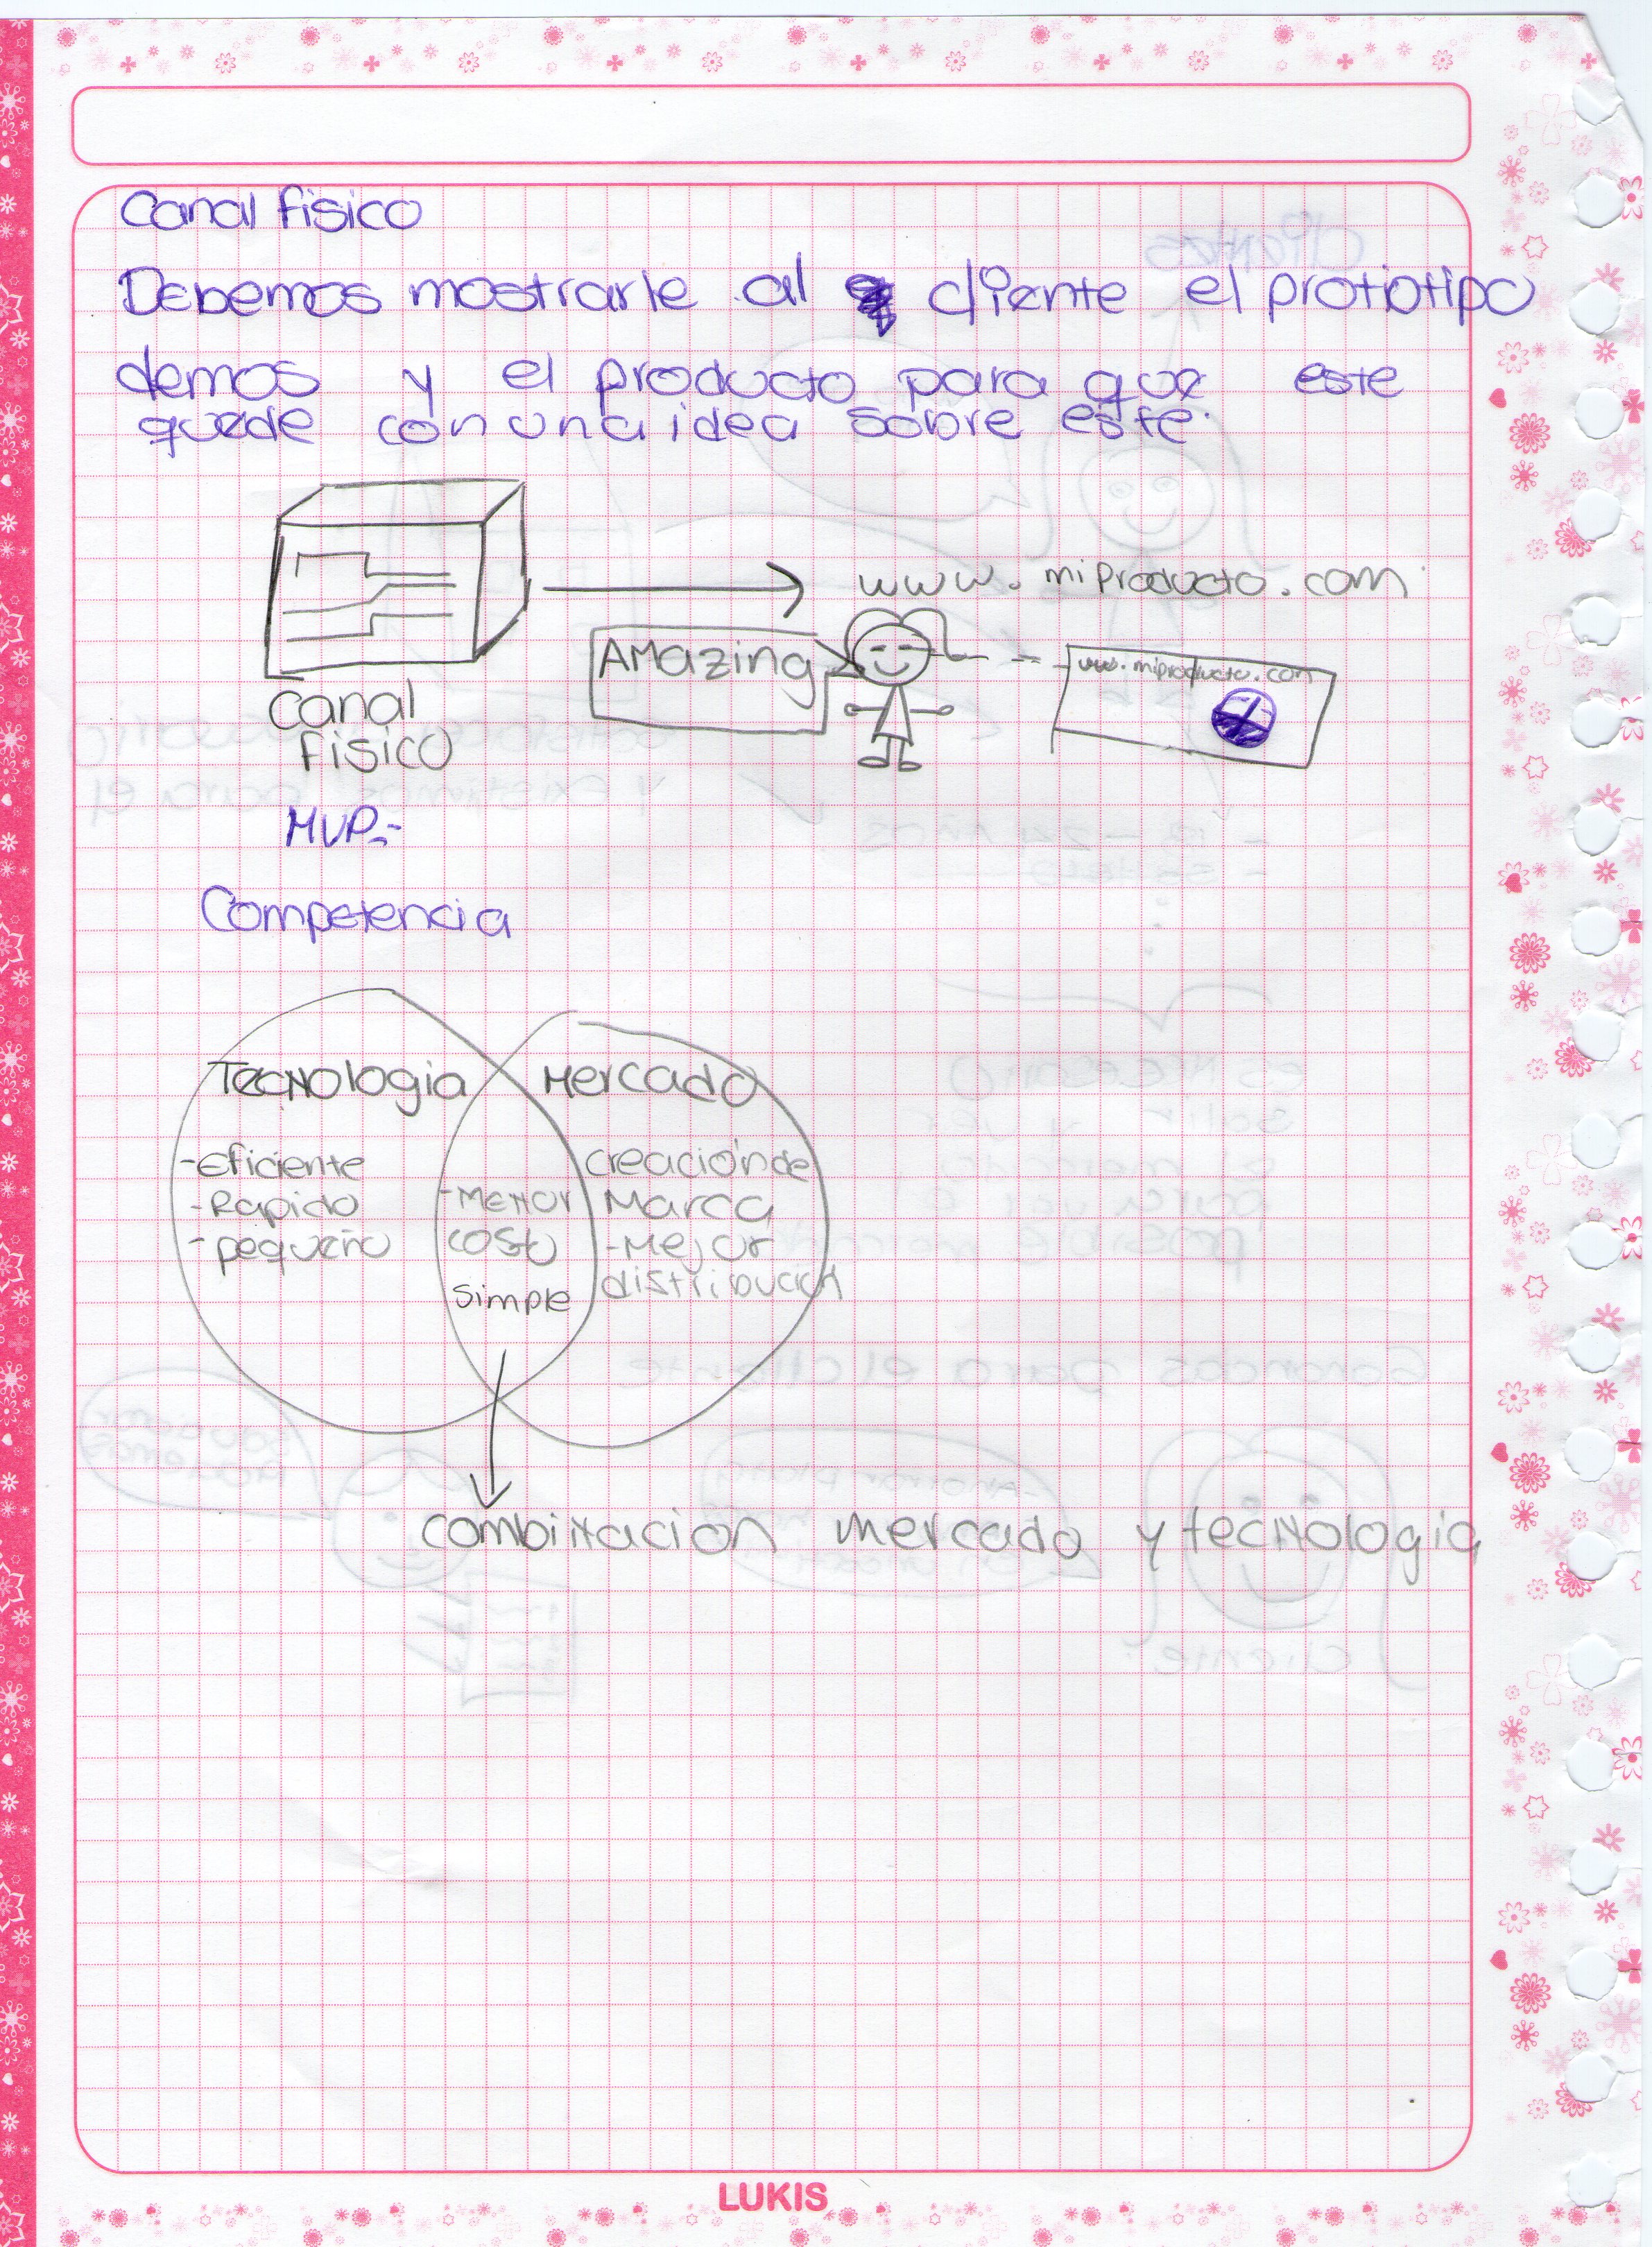 Canal fisico
Debemos mostrarle al cliente el protiotipo
demos y el producto para que este
quede con una idea sobre este.
www.miproducto.com
Amazing
www.miproducto.com
Canal
fisico
MVP.-
Competencia
Tecnologia
-Eficiente
-Rapido
-pequeño
-Menor
costo
simple
Mercado
creación de
Marca
-Mejor
distribución
combinacion mercado y tecnologia
LUKIS